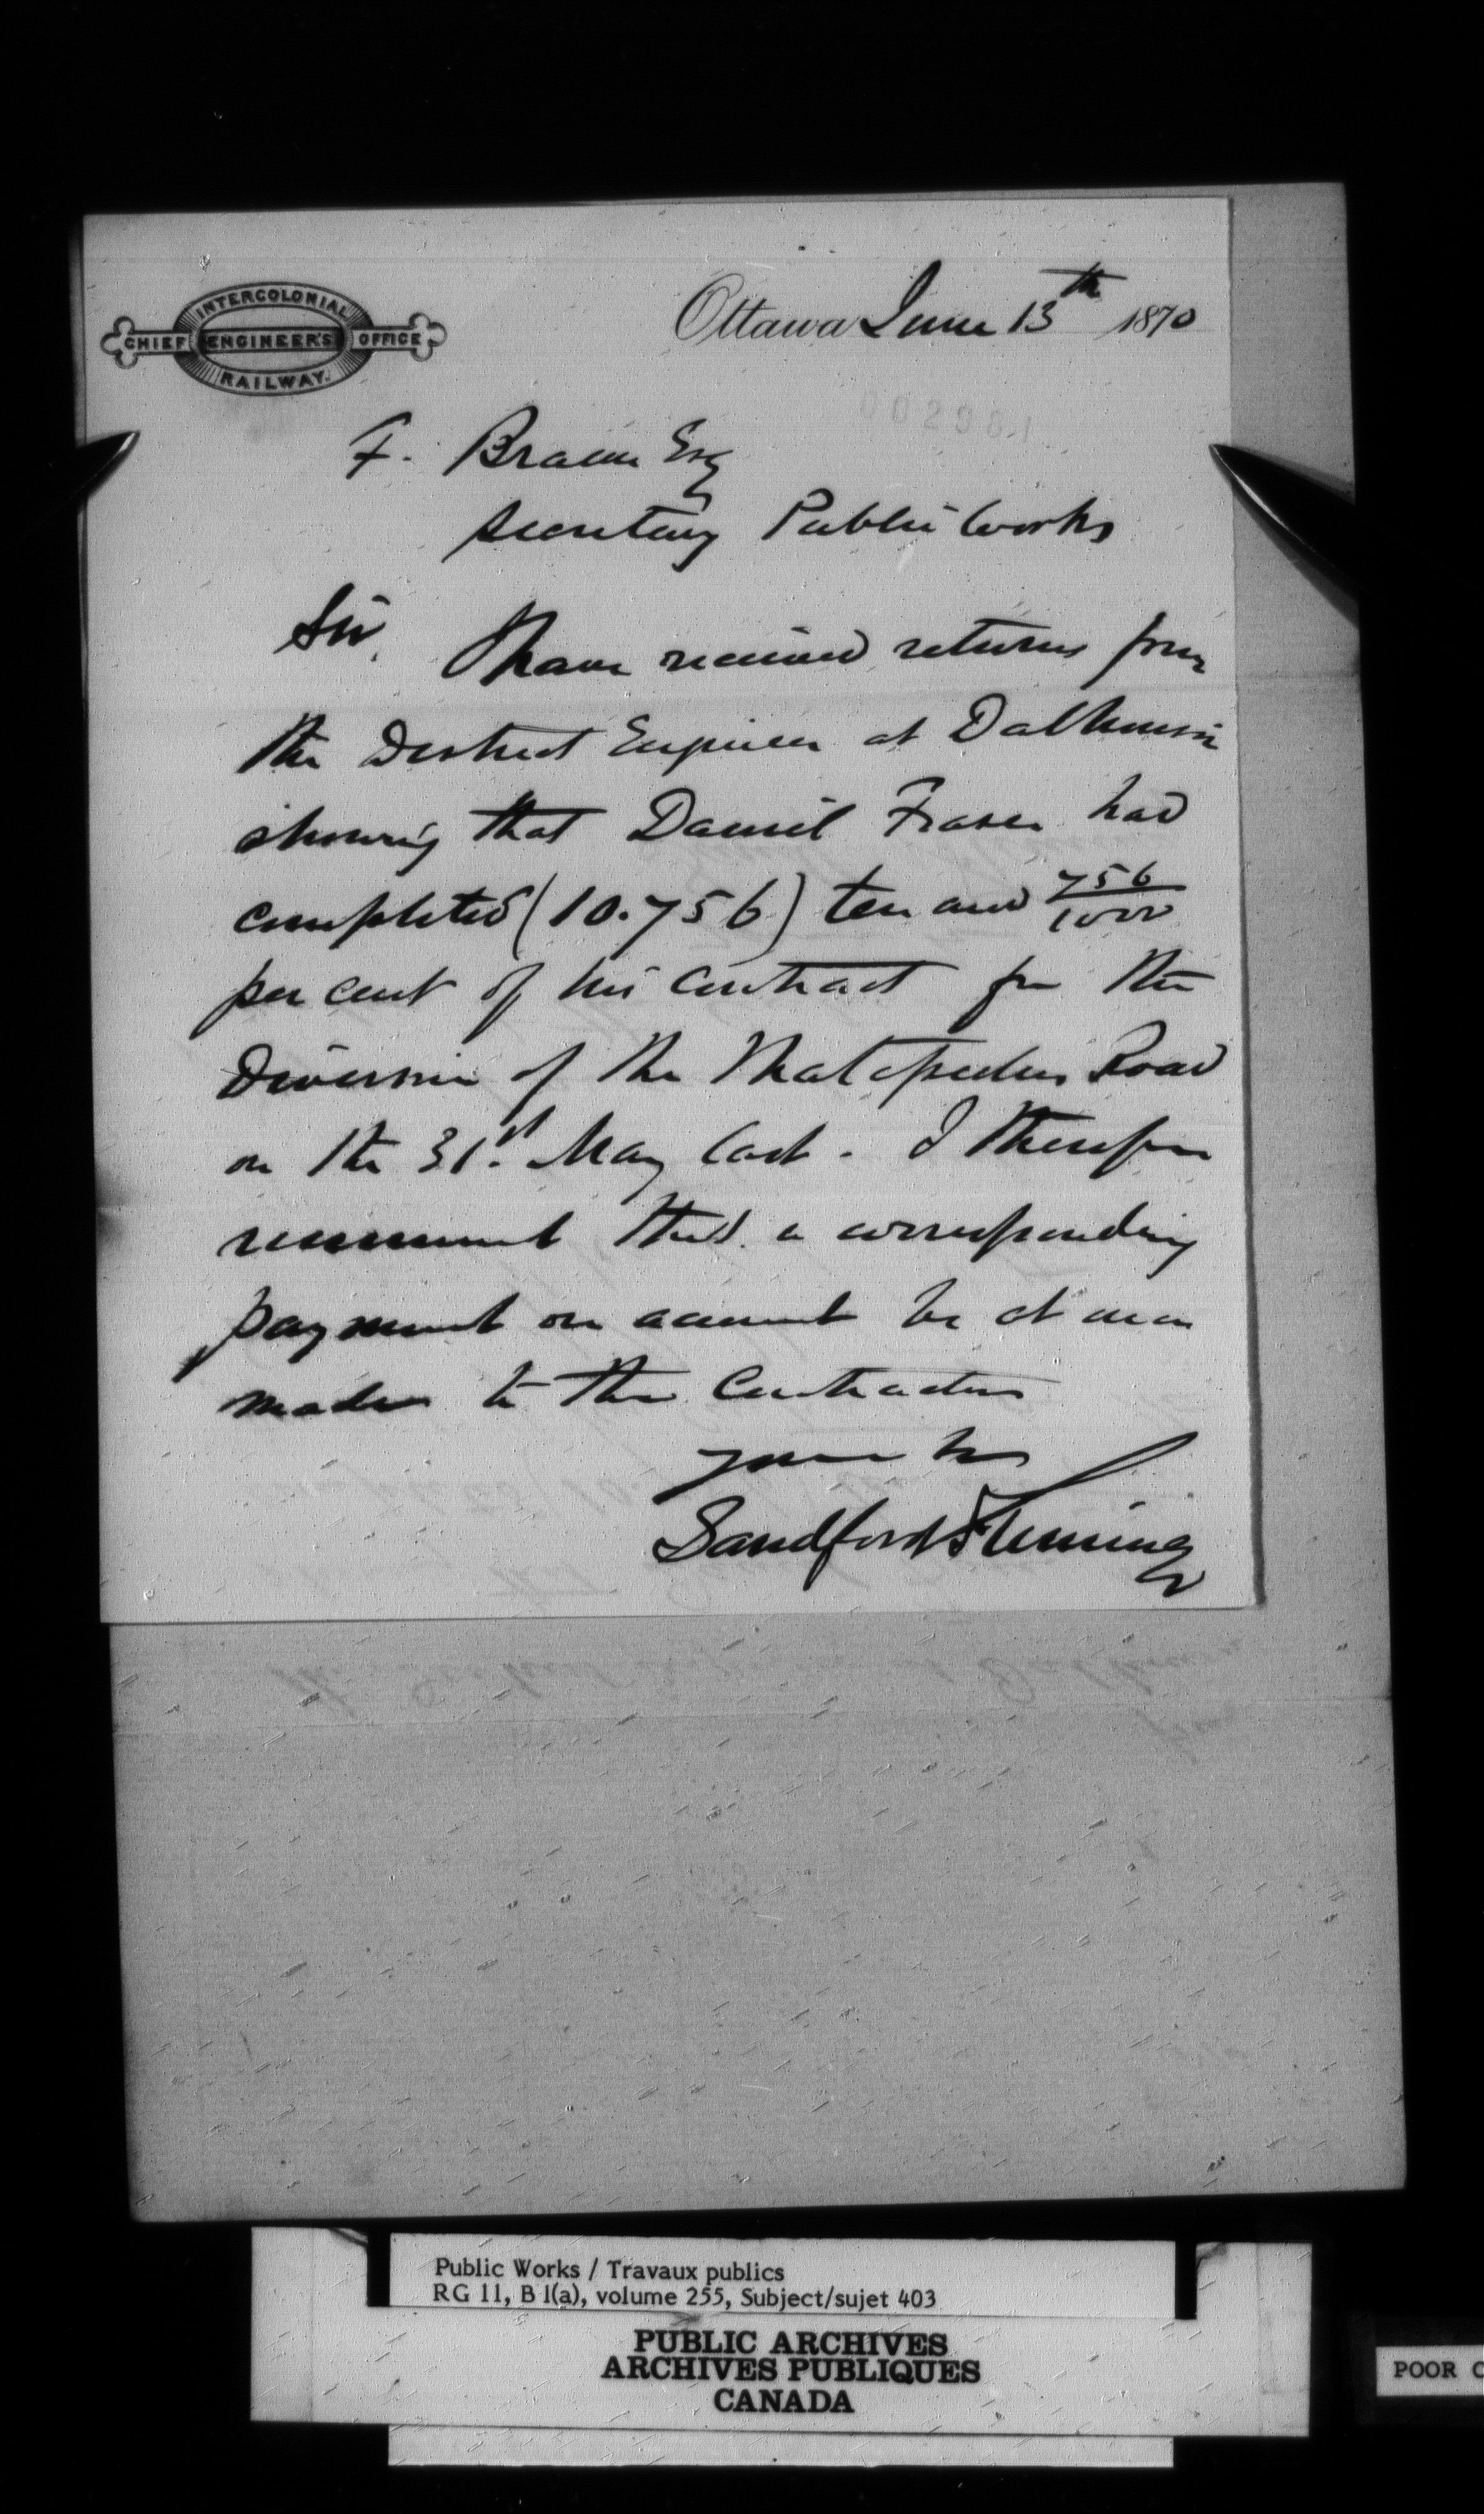 INTERCOLONIAL
CHIEF ENGINEER'S OFFICE
RAILWAY.
Ottawa June 13th 1870
002981
F. Braun Esq
Secretary Public Works
Sir, I have received returns from
the District Engineer at Dalhousie
showing that Daniel Fraser had
completed (10.756) ten and 756/1000
per cent of his contract for the
Diversion of the Matapedia Road
on the 31st May last. I therefore
recommend that a corresponding
payment on account be at once
made to the Contractor
Sandford Fleming
Public Works / Travaux publics
RG 11, B 1(a), volume 255, Subject/sujet 403
PUBLIC ARCHIVES
ARCHIVES PUBLIQUES
CANADA
POOR C